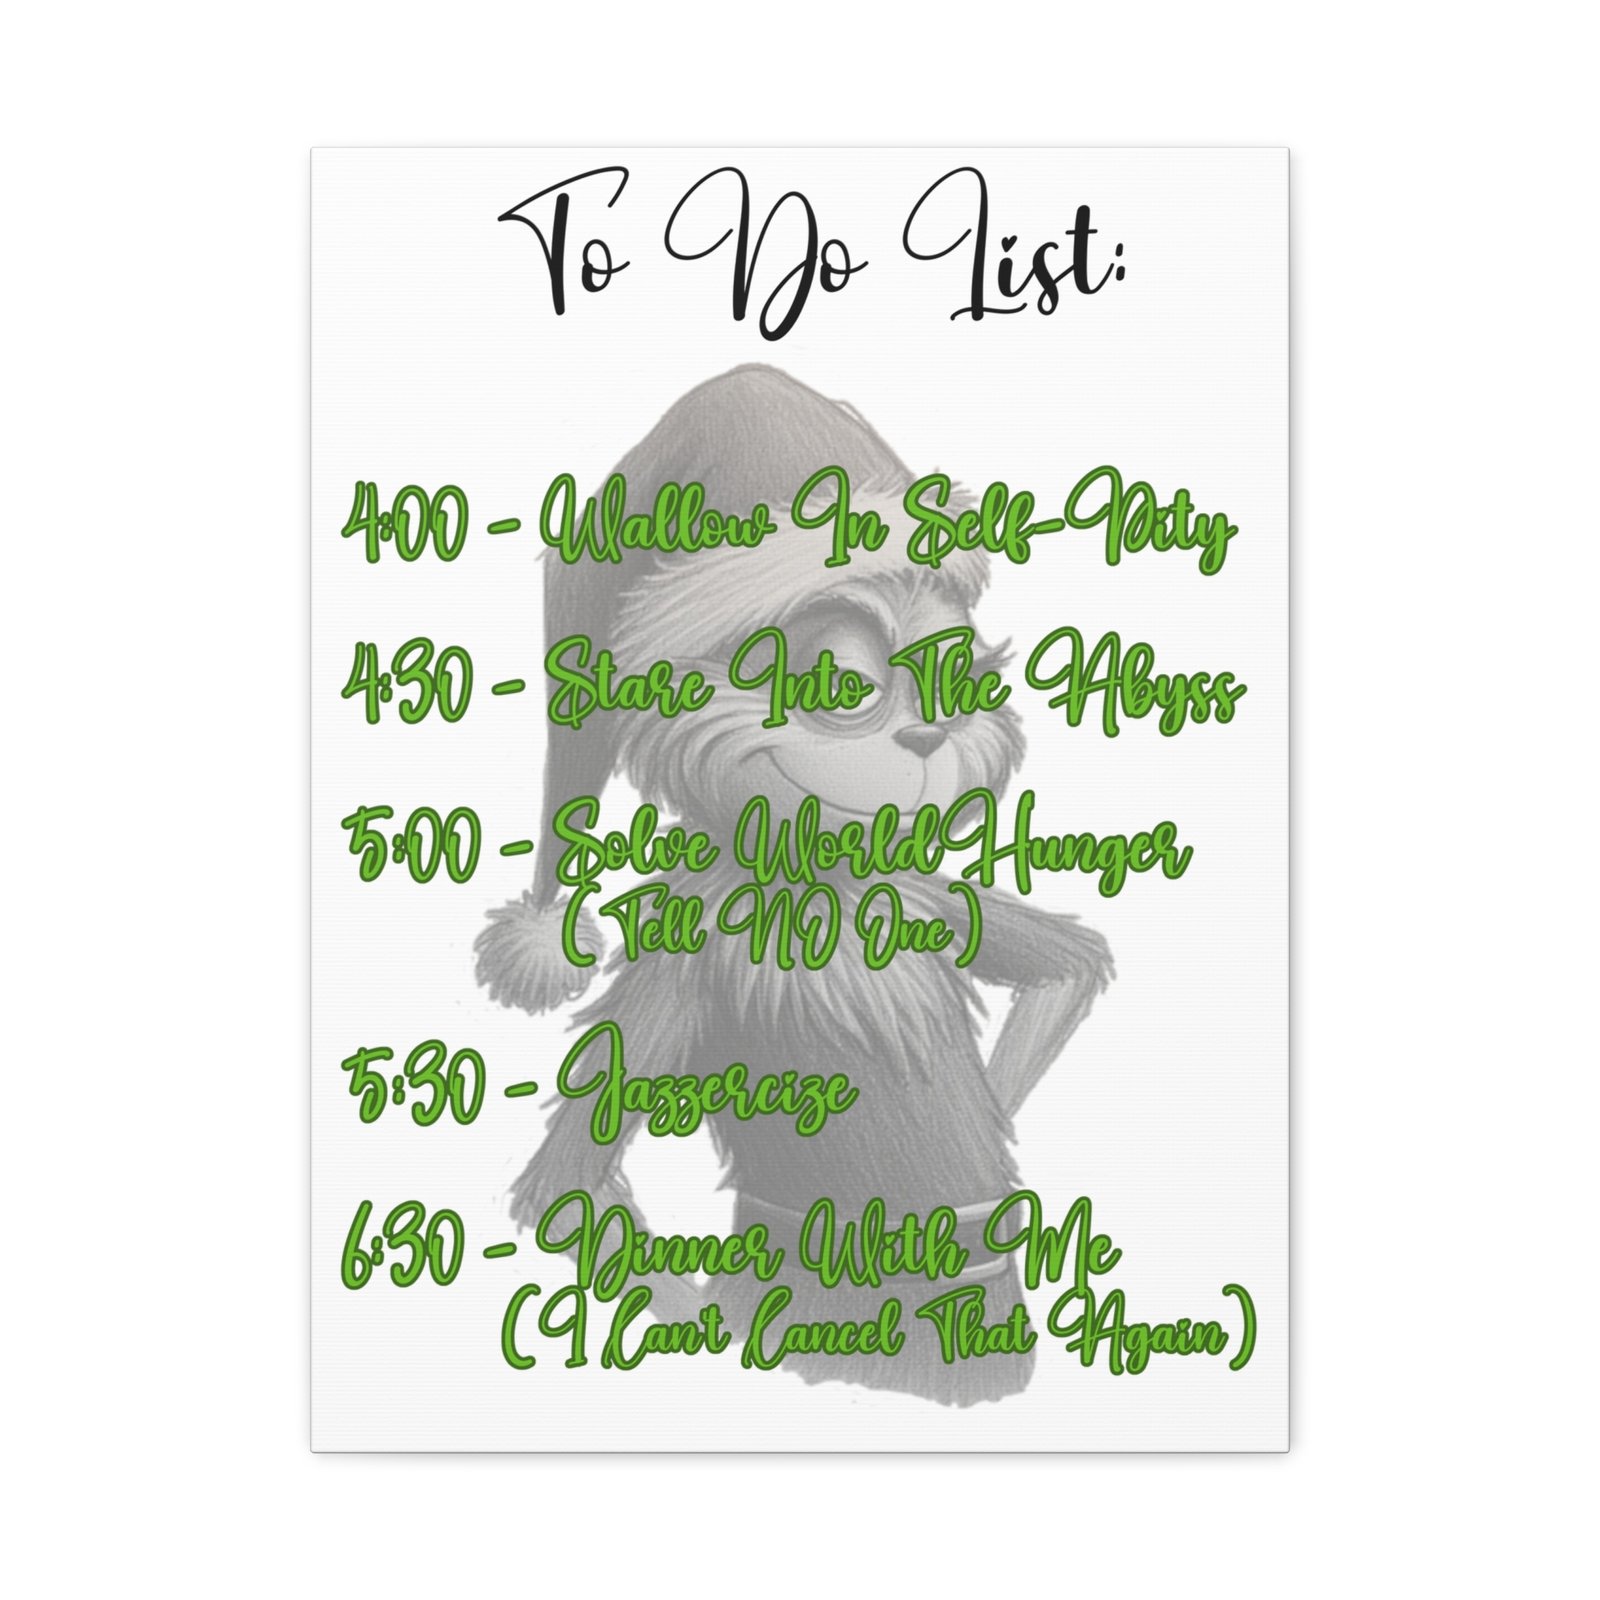 To Do List:
4:00 - Wallow In Self-Pity
4:30 - Stare Into The Abyss
5:00 - Solve World Hunger
( Tell NO One )
5:30 - Jazzercize
6:30 - Dinner With Me
( I Can't Cancel That Again )